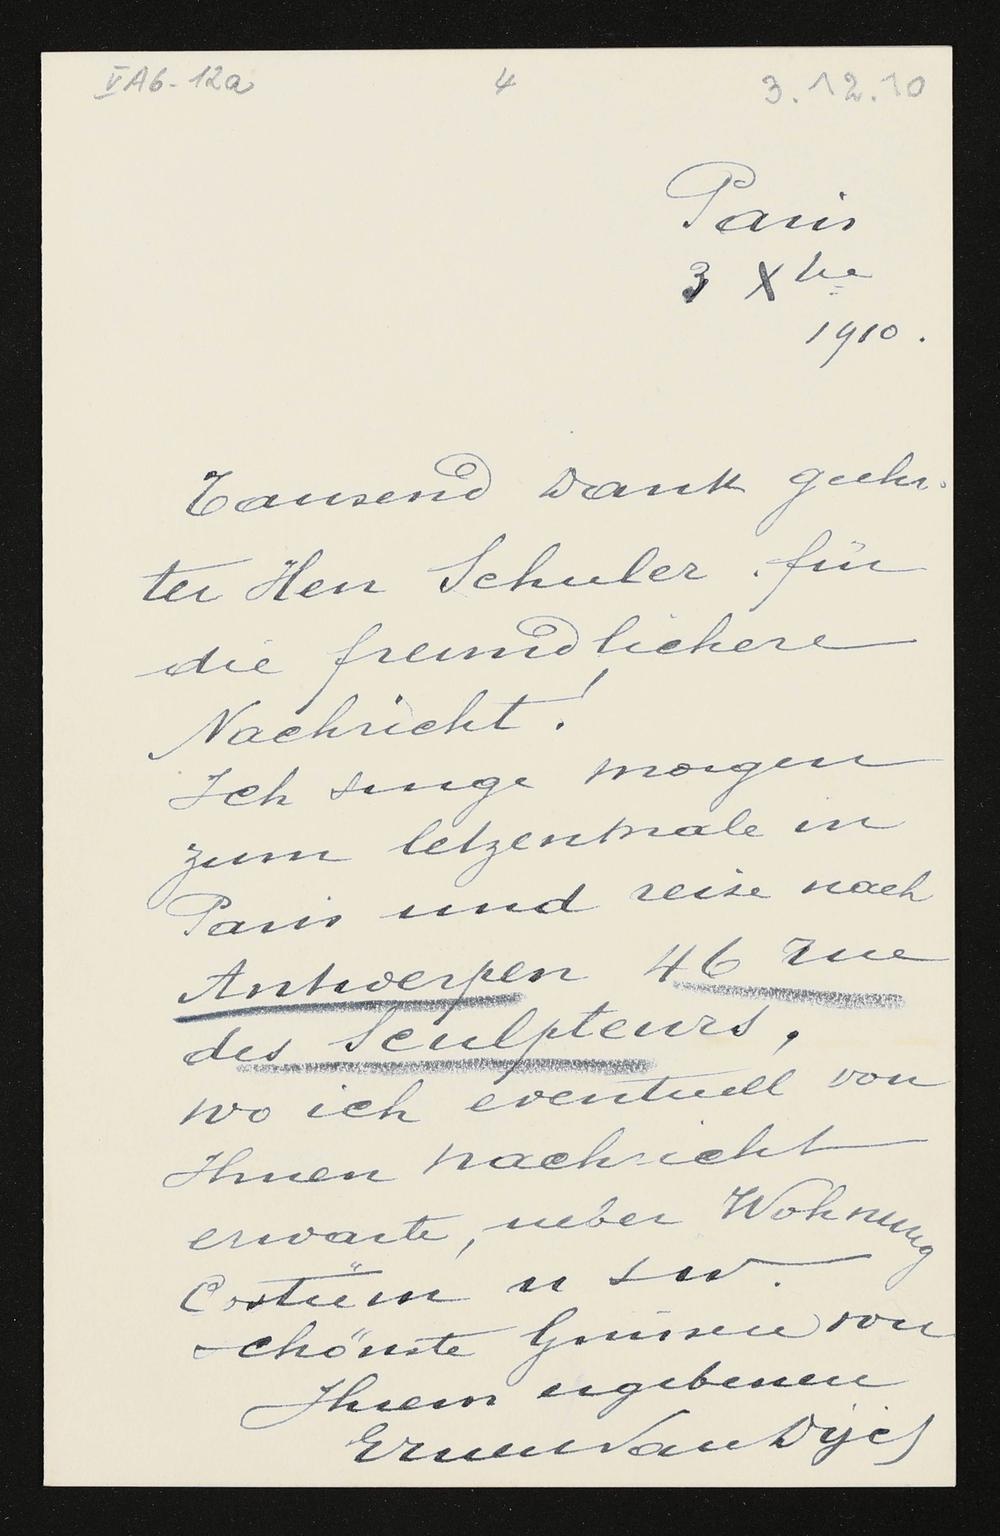 VA6-12a
4
3.12.10
Paris
3 Xbre
1910.
Tausend Dank geehr-
ter Herr Schuler für
die freundlichere
Nachricht!
Ich singe morgen
zum letzenmale in
Paris und reise nach
Antwerpen 46 rue
des Sculpteurs,
wo ich eventuell von
Ihnen nachricht
erwarte, ueber Wohnung
Costüm u s w.
schönste Grüssen von
Ihrem ergebenen
Ernest Van Dyck